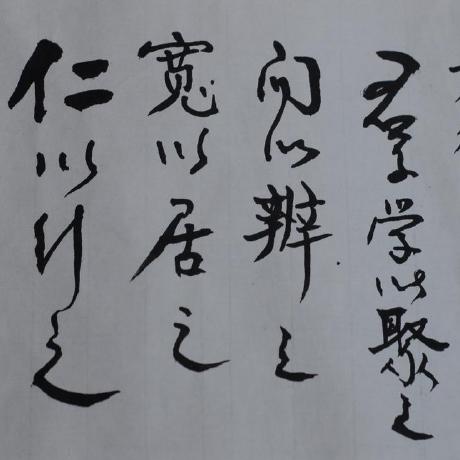 君子学以聚之
问以辨之
宽以居之
仁以行之